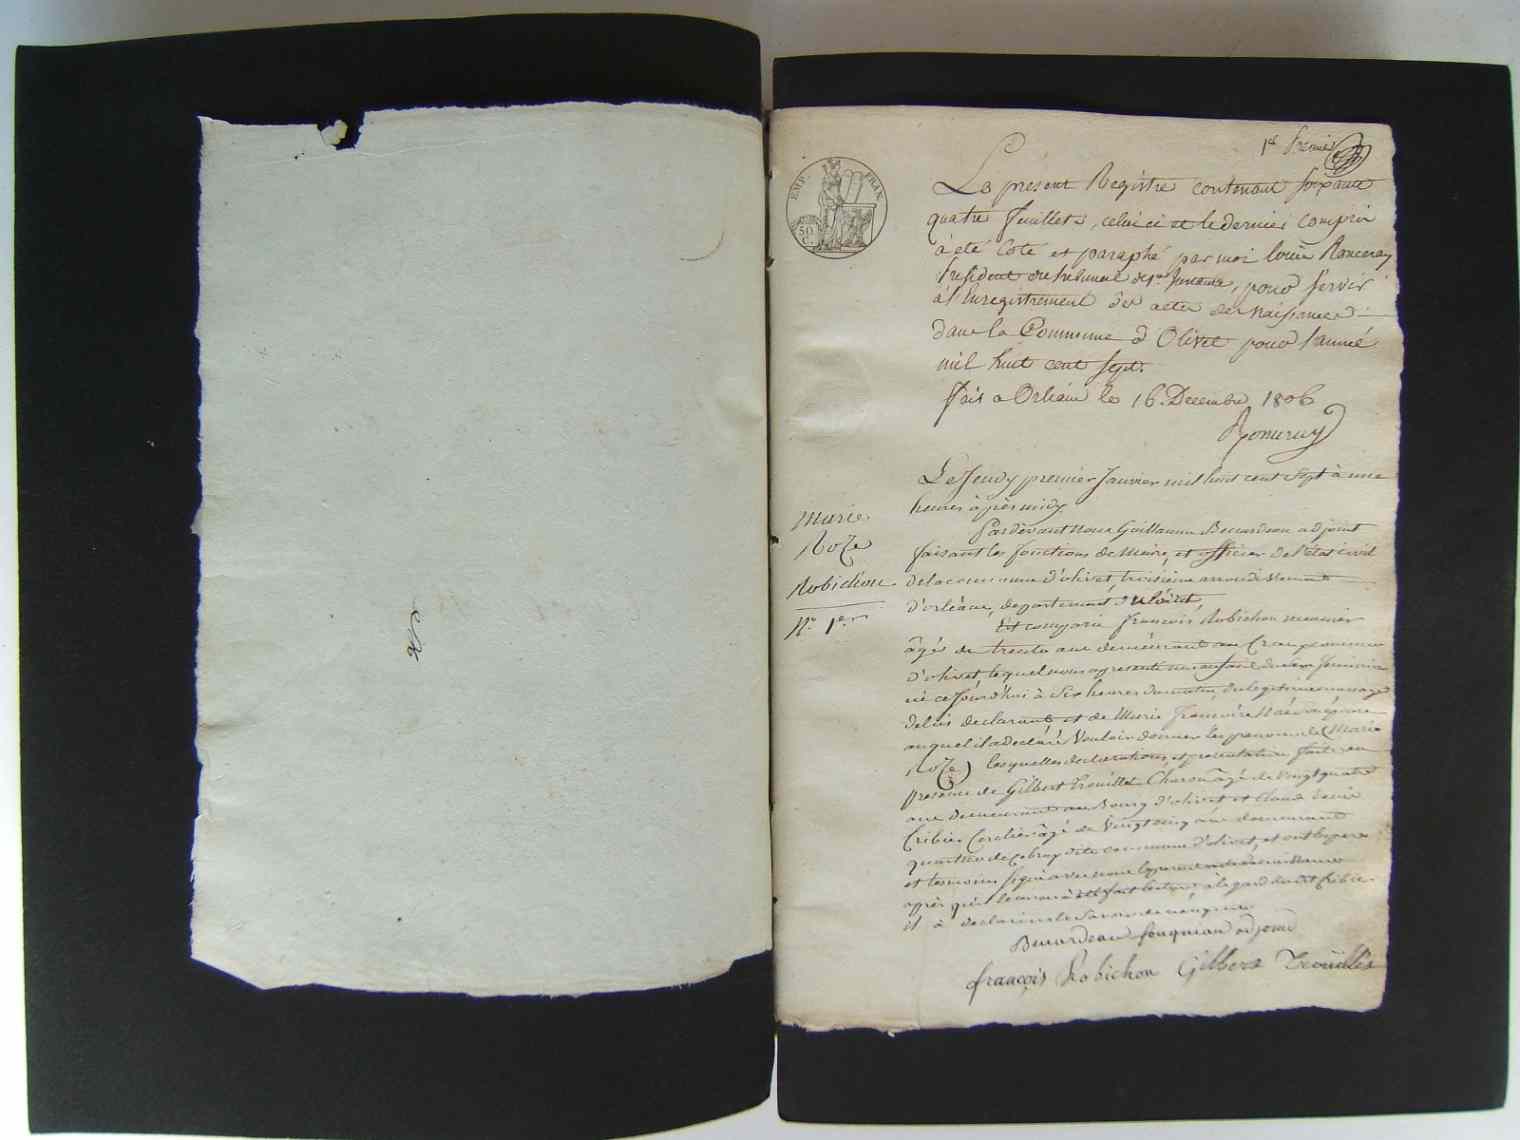 1er premier
EMP. FRAN.
50 C.
Le présent Registre contenant soixante
quatre feuillets, celui ci et le dernier compris
a été coté et paraphé par moi Louis Ranceray
Président du tribunal de 1ere Instance, pour servir
à l'Enregistrement des actes de Naissances
dans la Commune d'Olivet pour l'année
mil huit cent sept.
fait a Orléans le 16. Decembre 1806
Ranceray
Le Jeudy premier Janvier mil huit cent sept à une
heures après midy
Marie
Roze
Robichon
No. 1er
Pardevant nous Guillaume Beuardeau adjoint
faisant les fonctions de Maire, et officier de l'état civil
de la commune d'olivet, troisième arrondissement
d'orléans, departement du loiret,
Est comparu françois Robichon meunier
âgé de trente ans demeurant au commune
d'olivet, lequel nous a presenté un enfant du sexe feminin
né ce jourd'hui à six heures du matin, du legitime mariage
de lui declarant, et de Marie françoise son épouse
auquel il a declaré Vouloir donner les prenoms de Marie
Roze) lesquelles declaration, et presentation faites en
presence de Gilbert Trouillet Charon âgé de vingt quatre
ans demeurant au Bourg d'olivet et Claude Louis
Cribier Cordier âgé de vingt cinq ans demeurant
quartier de commune d'olivet, et ont le pere
et temoins signé avec nous le present acte de naissance
après qu'il leur en a été fait lecture, à l'egard du dit Cribier
il a declaré ne le savoir de ce enquis
Beuardeau adjoint
françois Robichon Gilbert Trouillet